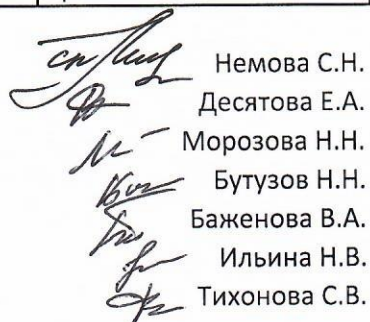 Немова С.Н.
Десятова Е.А.
Морозова Н.Н.
Бутузов Н.Н.
Баженова В.А.
Ильина Н.В.
Тихонова С.В.